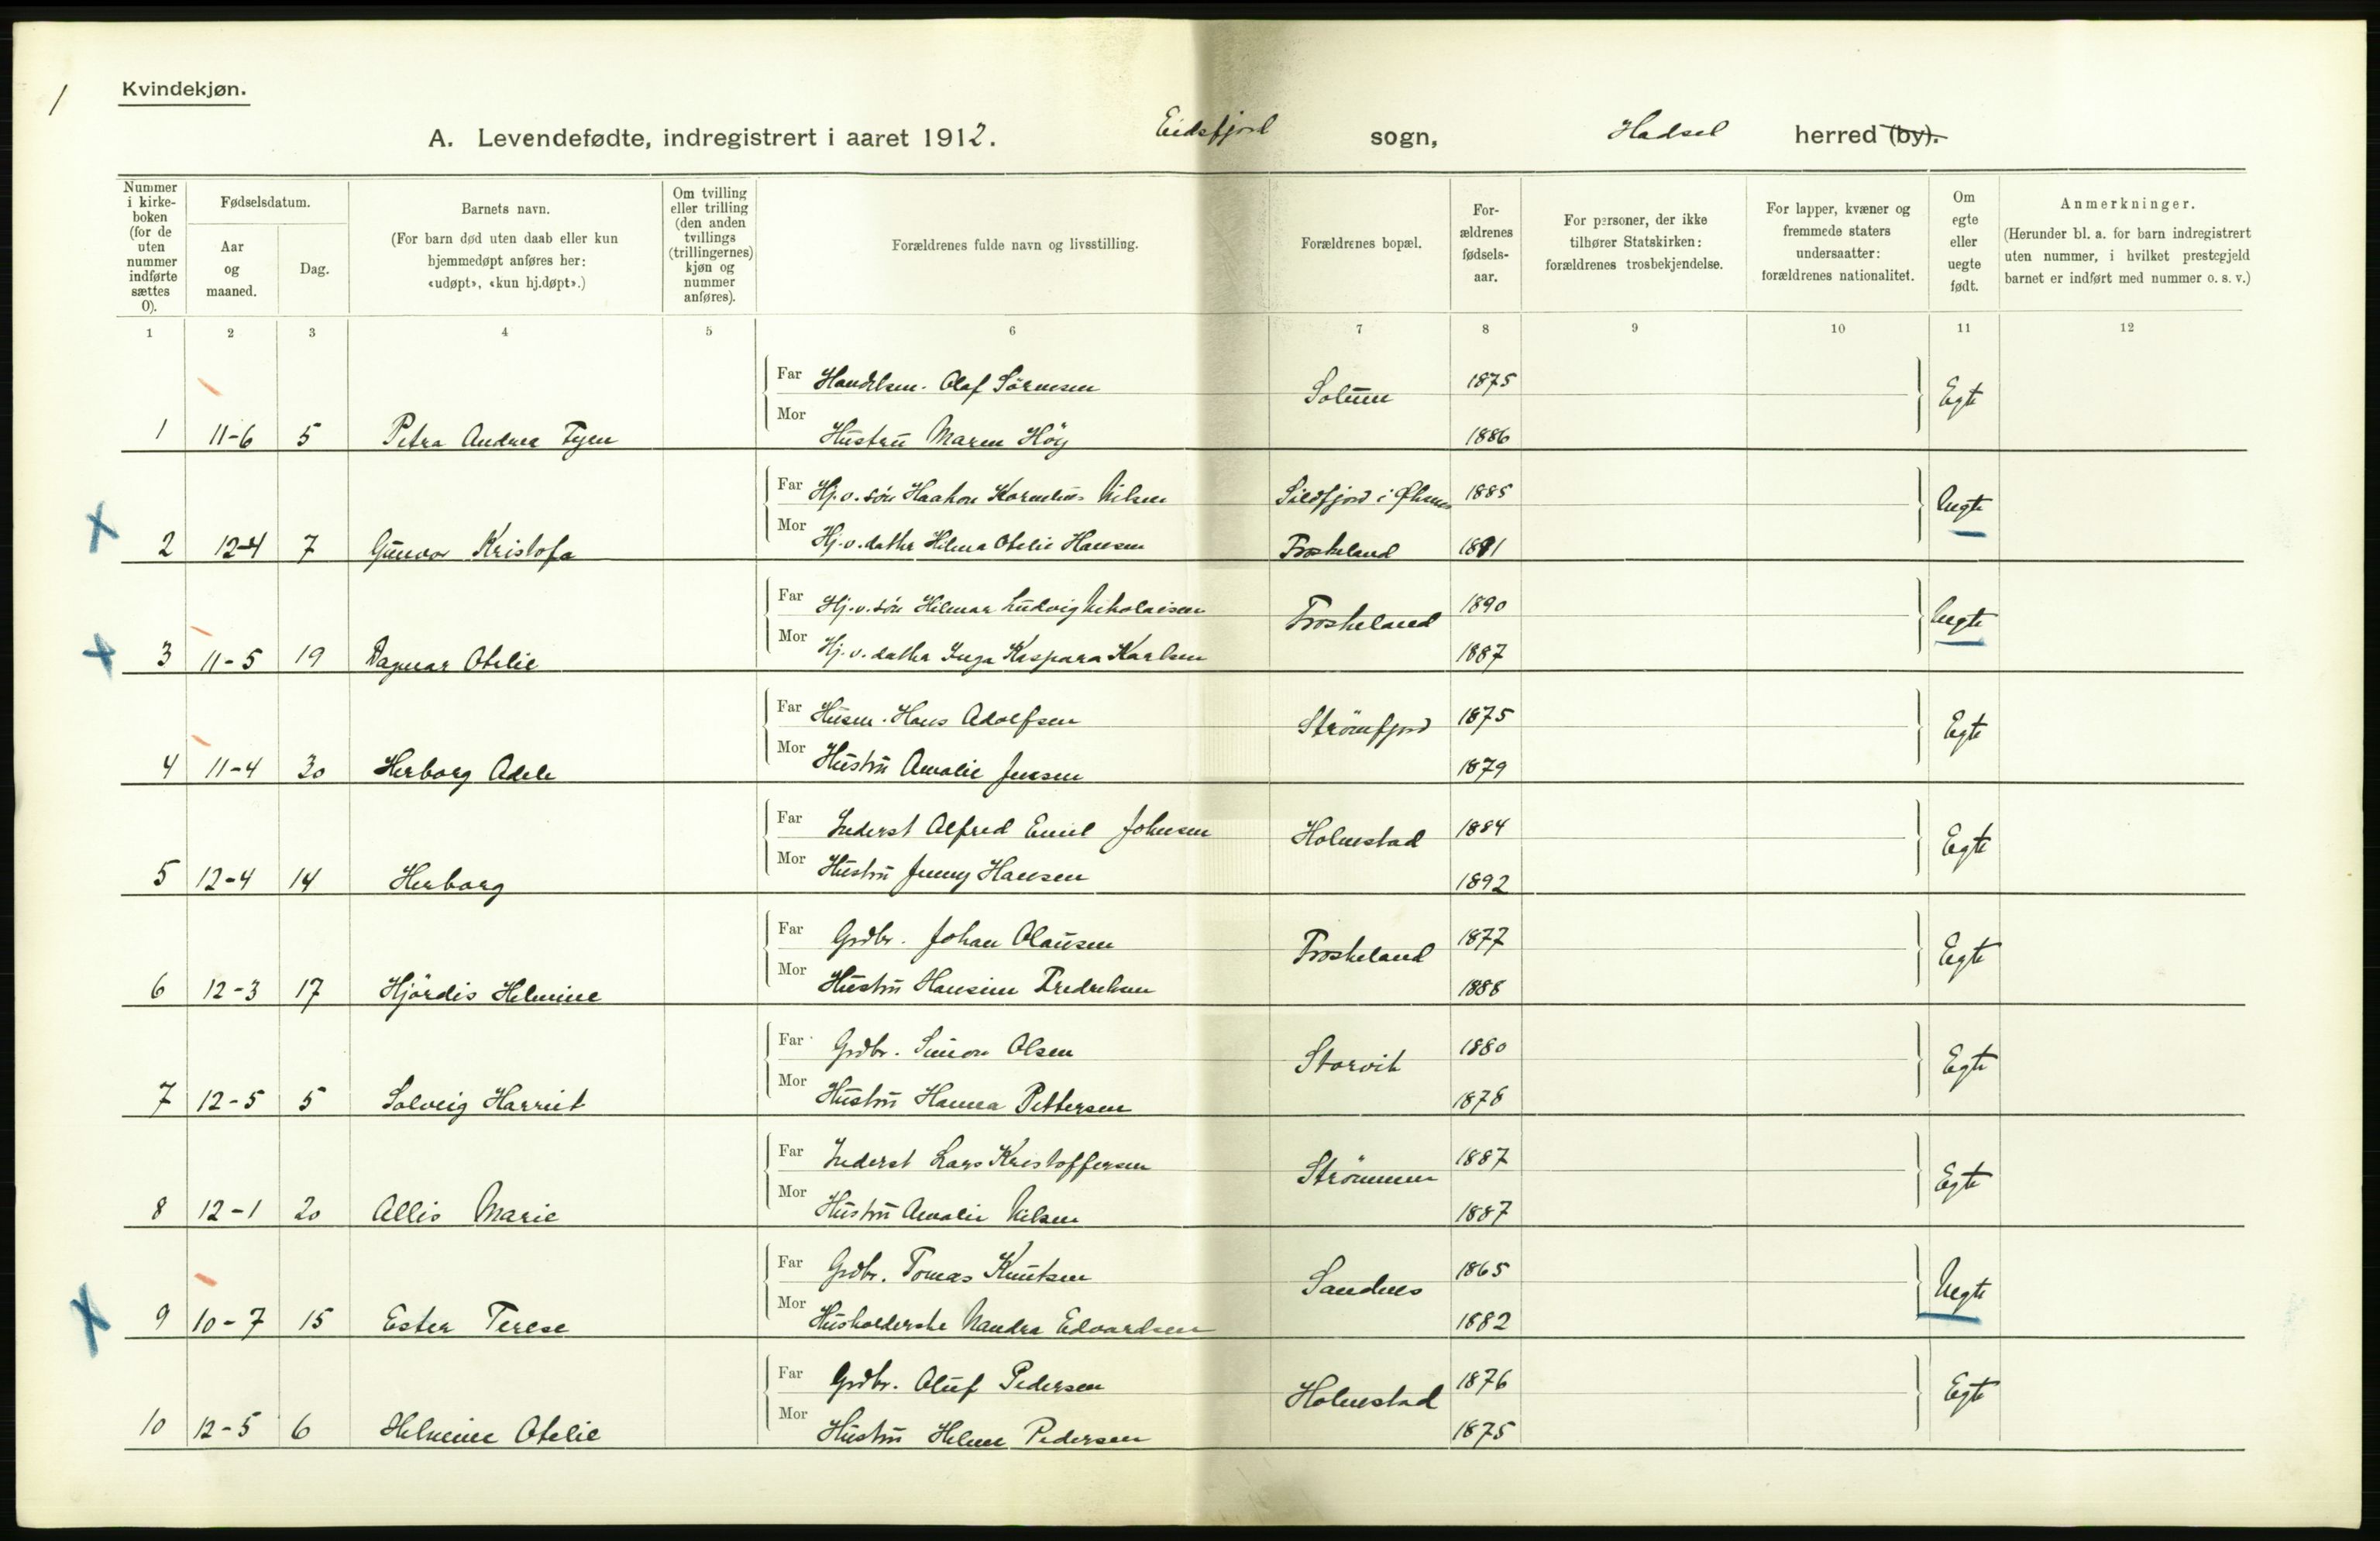 1
Kvindekjøn.
A. Levendefødte, indregistrert i aaret 1912. Eidsfjord sogn, Hadsel herred (by).
Nummer i kirke-boken (for de uten nummer indførte sættes 0).
Fødselsdatum.
Aar og maaned.
Dag.
Barnets navn.
(For barn død uten daab eller kun hjemmedøpt anføres her: «udøpt», «kun hj.døpt».)
Om tvilling eller trilling (den anden tvillings (trillingernes) kjøn og nummer anføres).
Forældrenes fulde navn og livsstilling.
Forældrenes bopæl.
For-ældrenes fødsels-aar.
For personer, der ikke tilhører Statskirken: forældrenes trosbekjendelse.
For lapper, kvæner og fremmede staters undersaatter: forældrenes nationalitet.
Om egte eller uegte født.
Anmerkninger.
(Herunder bl. a. for barn indregistrert uten nummer, i hvilket prestegjeld barnet er indført med nummer o. s. v.)
1 2 3 4 5 6 7 8 9 10 11 12
Far Handelsm. Olaf Sörensen Solum 1875 Egte
1 11-6 5 Petra Andrea Fyen Mor Hustru Maren Höy 1886
Far Hj.v. sön Haakon Kornelius Nilsen Sildfjord i Øksnes 1885 Uegte
2 12-4 7 Gunvor Kristofa Mor Hj.v. datter Hilma Otelie Hansen Froskeland 1891
Far Hj.v. sön Hilmar Ludvig Nikolaisen Froskeland 1890 Uegte
3 11-5 19 Dagmar Otelie Mor Hj.v. datter Inga Kaspara Karlsen 1887
Far Husm. Hans Adolfsen Strömfjord 1875 Egte
4 11-4 30 Herborg Adele Mor Hustru Amalie Jensen 1879
Far Inderst Alfred Emil Johnsen Holmstad 1884 Egte
5 12-4 14 Herborg Mor Hustru Jenny Hansen 1892
Far Grdbr. Johan Olausen Froskeland 1877 Egte
6 12-3 17 Hjördis Helmine Mor Hustru Hansine Fredriksen 1888
Far Grdbr. Simon Olsen Storvik 1880 Egte
7 12-5 5 Solveig Harriet Mor Hustru Hanna Pettersen 1878
Far Inderst Lars Kristoffersen Strömmen 1887 Egte
8 12-1 20 Allis Marie Mor Hustru Amalie Nilsen 1887
Far Grdbr. Tomas Knutsen Sandnes 1865 Uegte
9 10-7 15 Ester Terese Mor Husholderske Nandra Edvardsen 1882
Far Grdbr. Oluf Pedersen Holmstad 1876 Egte
10 12-5 6 Helmine Otelie Mor Hustru Helene Pedersen 1875